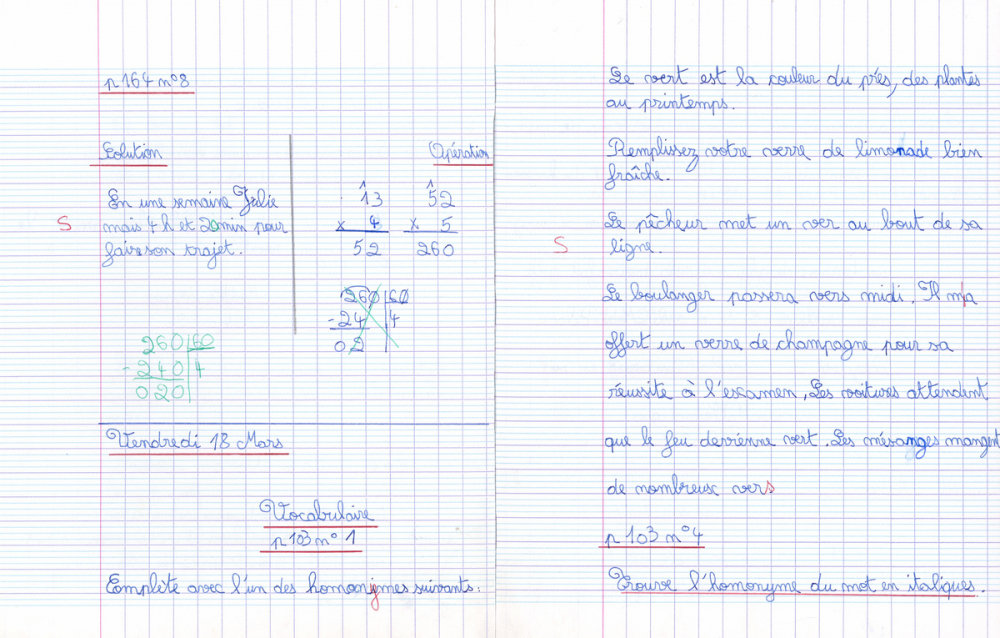 p 164 n°8
Solution
Opération
En une semaine Julie
mais 4 h et 20 min pour
faire son trajet.
S
13
x 4
52
52
x 5
260
260 60
- 24 4
02
260 60
- 240 4
020
Vendredi 18 Mars
Vocabulaire
p 103 n° 1
Complète avec l'un des homonymes suivants :
Le vert est la couleur du prés, des plantes
au printemps.
Remplissez votre verre de limonade bien
fraîche.
Le pêcheur met un ver au bout de sa
S
ligne.
Le boulanger passera vers midi. Il m'a
offert un verre de champagne pour sa
réussite à l'examen. Les voitures attendent
que le feu devienne vert. Les mésanges mangent
de nombreux vers
p 103 n°4
Trouve l'homonyme du mot en italiques.